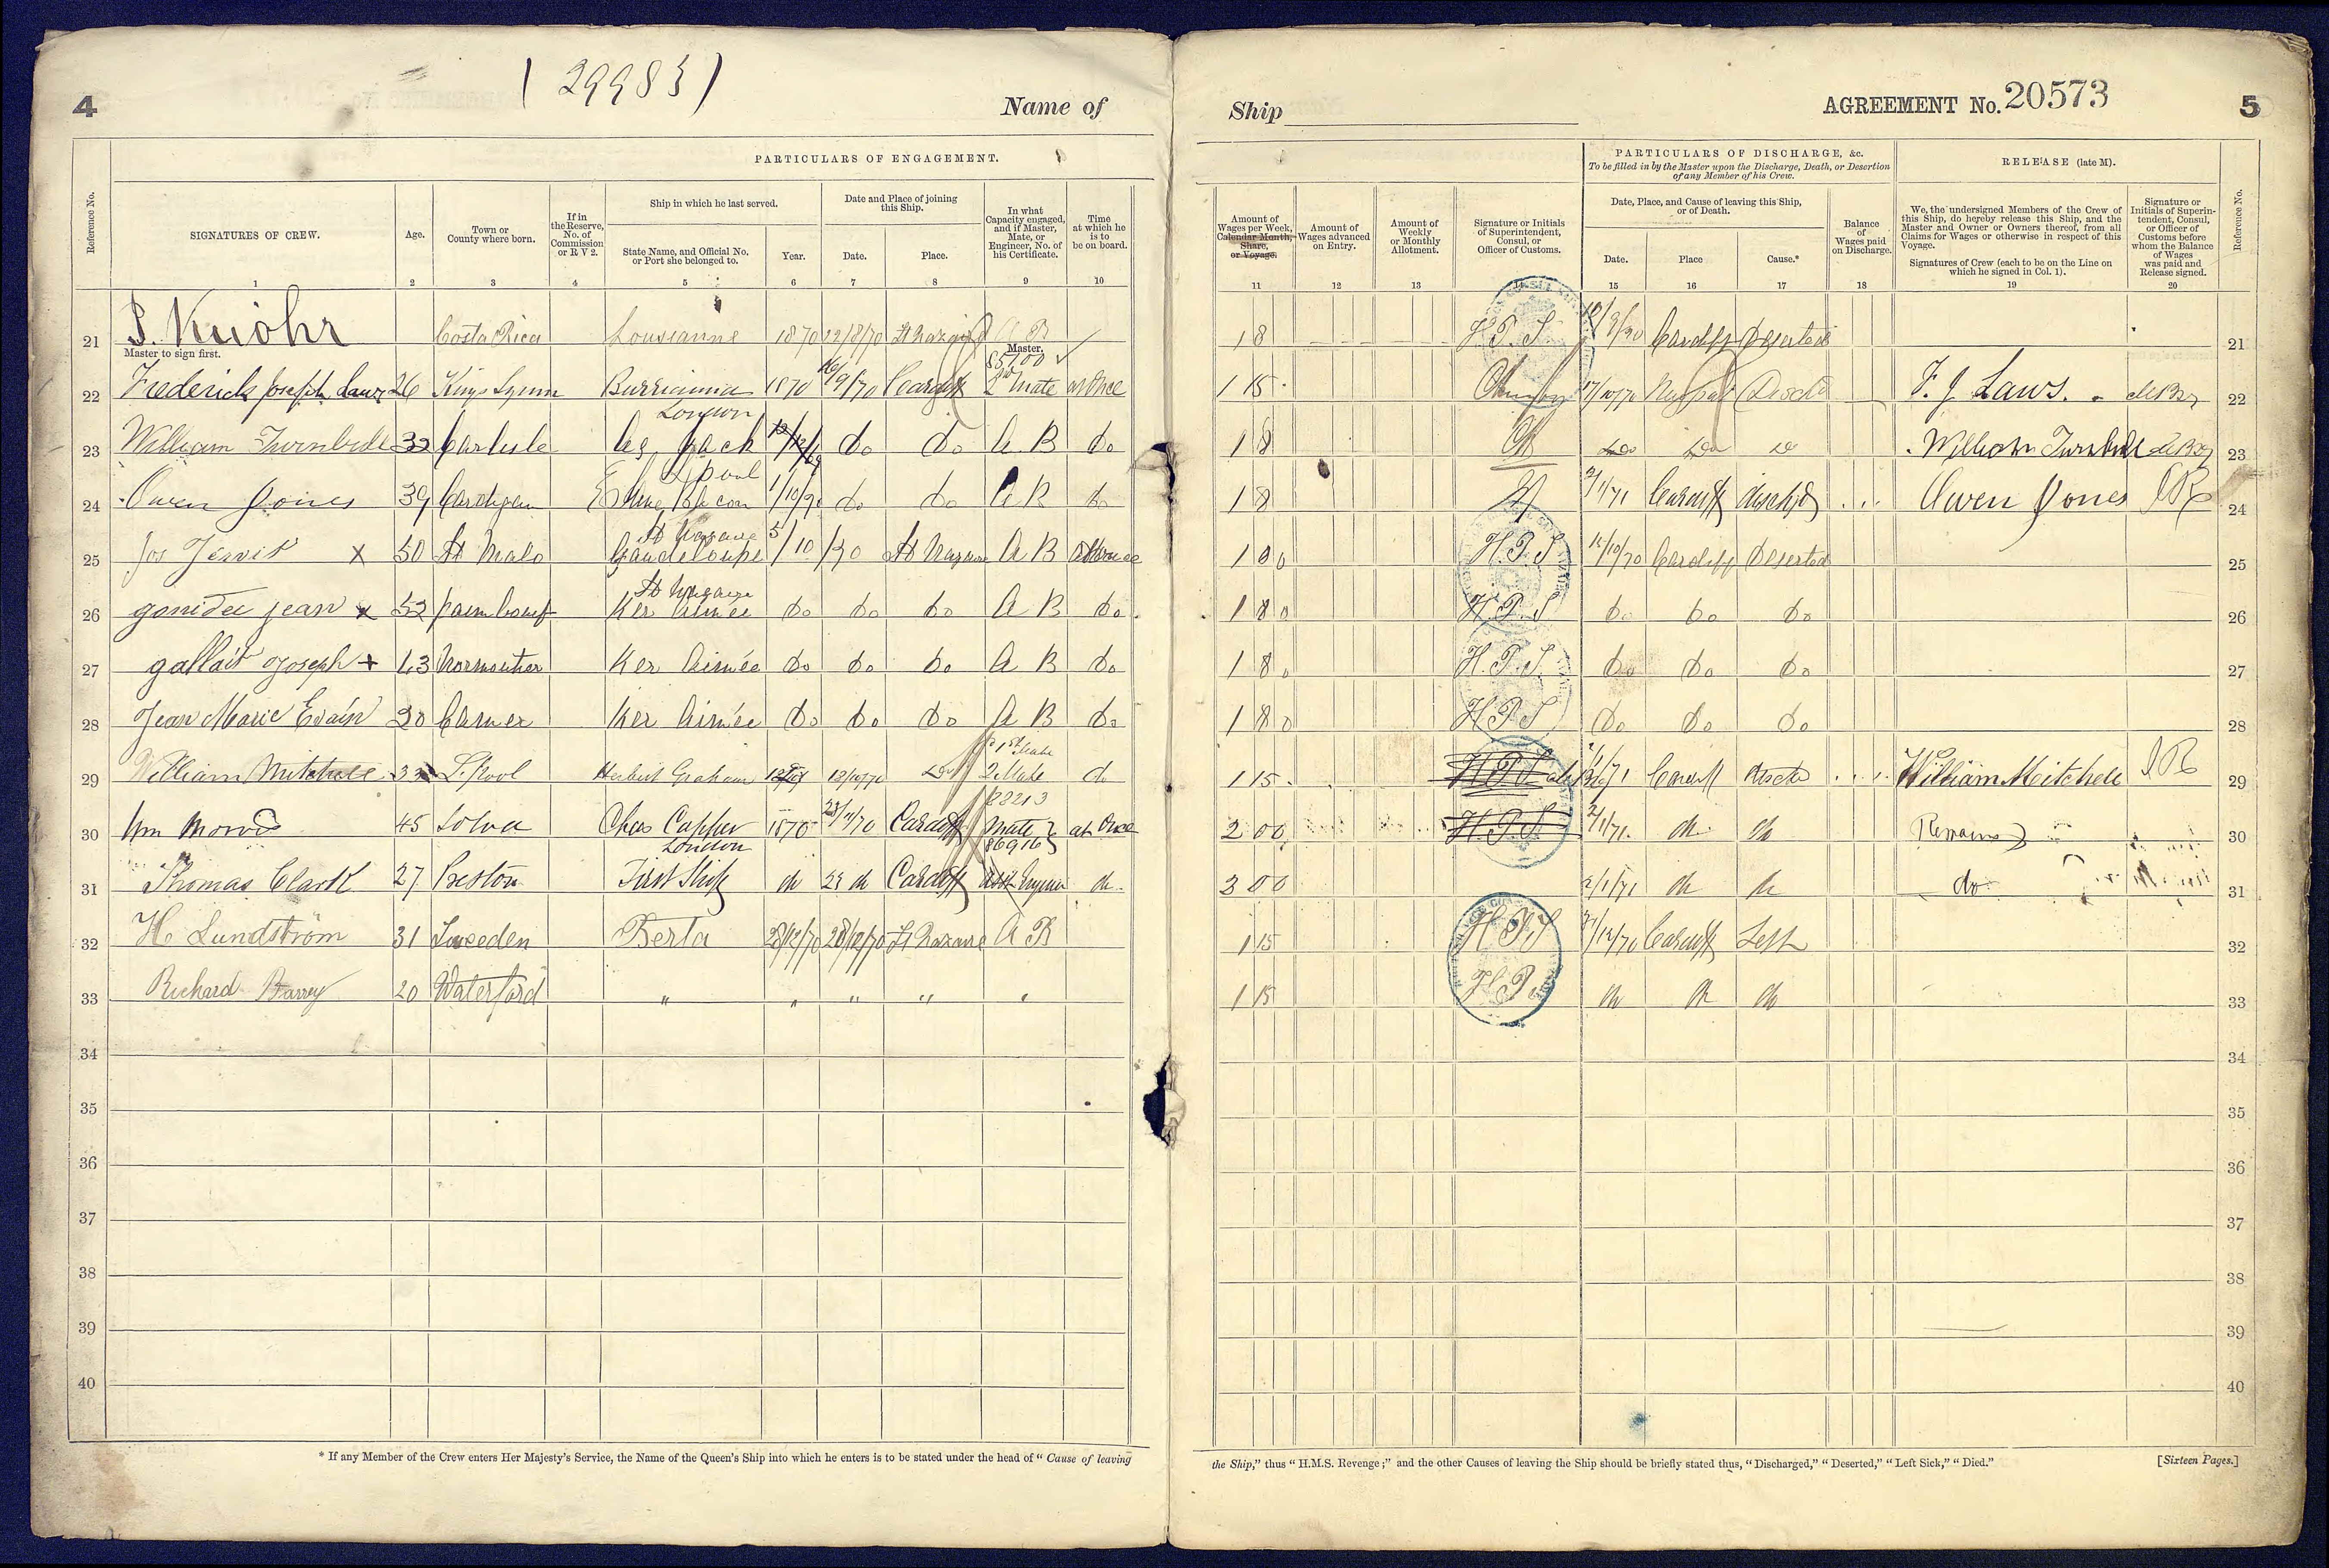 ( 29983 )
4
Name of
PARTICULARS OF ENGAGEMENT.
Reference No.
SIGNATURES OF CREW.
Age.
Town or County where born.
If in the Reserve, No. of Commission or R V 2.
Ship in which he last served.
State Name, and Official No. or Port she belonged to.
Year.
Date and Place of joining this Ship.
Date.
Place.
In what Capacity engaged, and if Master, Mate, or Engineer, No. of his Certificate.
Time at which he is to be on board.
1 2 3 4 5 6 7 8 9 10
21 Costa Rica Lousianne 1870 22/8/70 St Nazaire A B
Master to sign first.
Master.
85100
22 Frederick Joseph Laws 26 Kings Lynn 1870 Cardiff 2nd Mate at Once
London
23 William Turnbull 32 Carlisle do do A B do
L'pool
24 Owen Jones 39 Cardigan do do A B do
St Nazaire
25 Jos x 50 St Malo Gaudeloupe 5/10/70 St Nazaire A B at Once
St Nazaire
26 jean x 52 Ker Aimée do do do A B do
27 joseph + 43 Ker Aimée do do do A B do
28 Jean Marie Evain 30 Ker Aimée do do do A B do
1st Mate
29 William Mitchell 33 L.pool Herbert Graham do 2 Mate do
30 Wm Morris 45 Solva 1870 Cardiff Mate at Once
London
86916
31 Thomas Clark 27 Preston First Ship do 23 do Cardiff do
32 H. Lundström 31 Sweden Berta 28/12/70 28/12/70 St Nazaire A B
33 Richard Barry 20 Waterford " " " " "
34
35
36
37
38
39
40
* If any Member of the Crew enters Her Majesty's Service, the Name of the Queen's Ship into which he enters is to be stated under the head of " Cause of leaving
Ship
AGREEMENT No. 20573
5
PARTICULARS OF DISCHARGE, &c.
To be filled in by the Master upon the Discharge, Death, or Desertion of any Member of his Crew.
RELEASE (late M).
Amount of Wages per Week, Calendar Month, Share, or Voyage.
Amount of Wages advanced on Entry.
Amount of Weekly or Monthly Allotment.
Signature or Initials of Superintendent, Consul, or Officer of Customs.
Date, Place, and Cause of leaving this Ship, or of Death.
Date.
Place
Cause.*
Balance of Wages paid on Discharge.
We, the undersigned Members of the Crew of this Ship, do hereby release this Ship, and the Master and Owner or Owners thereof, from all Claims for Wages or otherwise in respect of this Voyage.
Signatures of Crew (each to be on the Line on which he signed in Col. 1).
Signature or Initials of Superintendent, Consul, or Officer of Customs before whom the Balance of Wages was paid and Release signed.
Reference No.
11 12 13 14 15 16 17 18 19 20
1 8 H. P. S. Cardiff Deserted 21
1 15 F. J. Laws. 22
1 8 Do Do Do William Turnbull 23
1 8 2/1/71 Cardiff Owen Jones 24
1 8 0 H. P. S 11/10/70 Cardiff Deserted 25
1 8 0 H. P. S do do do 26
1 8 0 H. P. S. do do do 27
1 8 0 H. P. S do do do 28
1 15 H. P. S Cardiff William Mitchell 29
2 0 0 H. P. S. 2/1/71 do do Remains 30
3 0 0 2/1/71 do do do 31
1 15 H. P. S 31/12/70 Cardiff Left 32
1 15 H. P. S do do do 33
34
35
36
37
38
39
40
the Ship," thus " H.M.S. Revenge ;" and the other Causes of leaving the Ship should be briefly stated thus, " Discharged," " Deserted," " Left Sick," " Died."
[Sixteen Pages.]